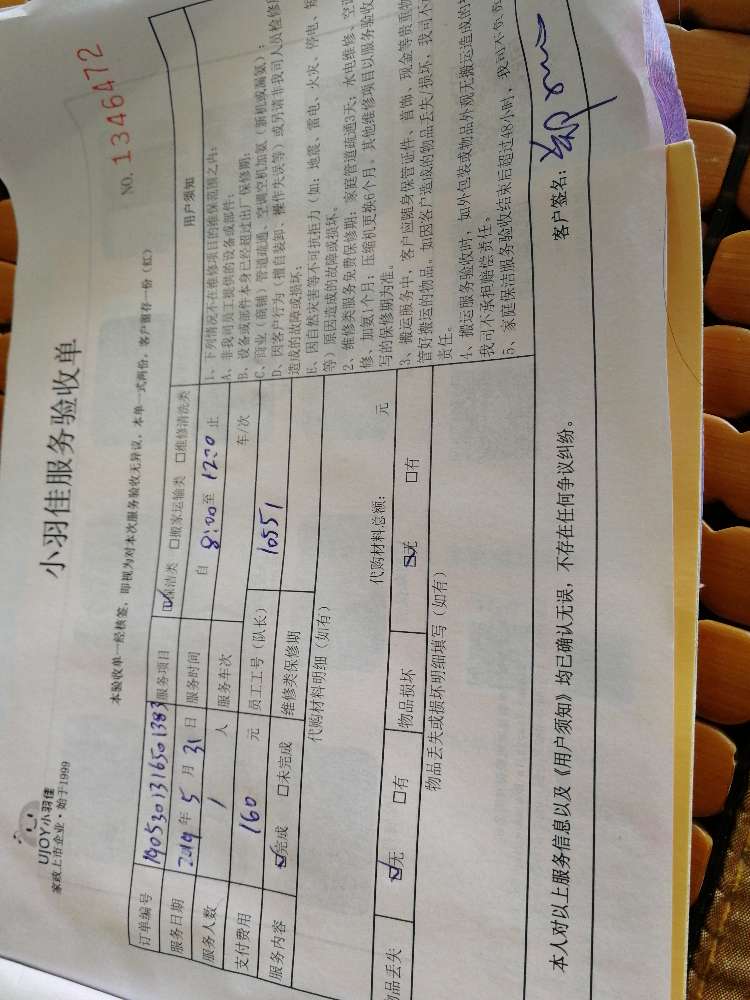 UJOY小羽佳
家政上市企业·始于1999
小羽佳服务验收单
NO. 1346472
本验收单一经核签，即视为对本次服务验收无异议，本单一式两份，客户留存一份（红）
订单编号 1905301316501383 服务项目 ☑保洁类 □搬家运输类 □维修清洗类
服务日期 2019 年 5 月 31 日 服务时间 自 8:00 至 12:00 止
服务人数 1 人 服务车次 车/次
支付费用 160 元 员工工号（队长） 10551
服务内容 ☑完成 □未完成 维修类保修期
代购材料明细（如有）
代购材料总额： 元
品丢失 ☑无 □有 物品损坏 ☑无 □有
物品丢失或损坏明细填写（如有）
用户须知
1、下列情况不在维修项目的维保范围之内：
A、非我司员工提供的设备或部件；
B、设备或部件本身已经超过出厂保修期；
C、商业（商铺）管道疏通、空调空机加氨（新机或漏氨）；
D、因客户行为（擅自装卸、操作失误等）或另请非我司人员检修
造成的故障或损坏；
E、因自然灾害等不可抗拒力（如：地震、雷电、火灾、停电、
等）原因造成的故障或损坏。
2、维修类服务免费保修期：家庭管道疏通3天；水电维修、空
修、加氨1个月；压缩机更换6个月。其他维修项目以服务验收
写的保修期为准。
3、搬运服务中，客户应随身保管证件、首饰、现金等贵重物
管好搬运的物品。如因客户造成的物品丢失/损坏，我司不
责任。
4、搬运服务验收时，如外包装或物品外观无搬运造成的
我司不承担赔偿责任。
5、家庭保洁服务验收结束后超过48小时，我司不负责
本人对以上服务信息以及《用户须知》均已确认无误，不存在任何争议纠纷。
客户签名：